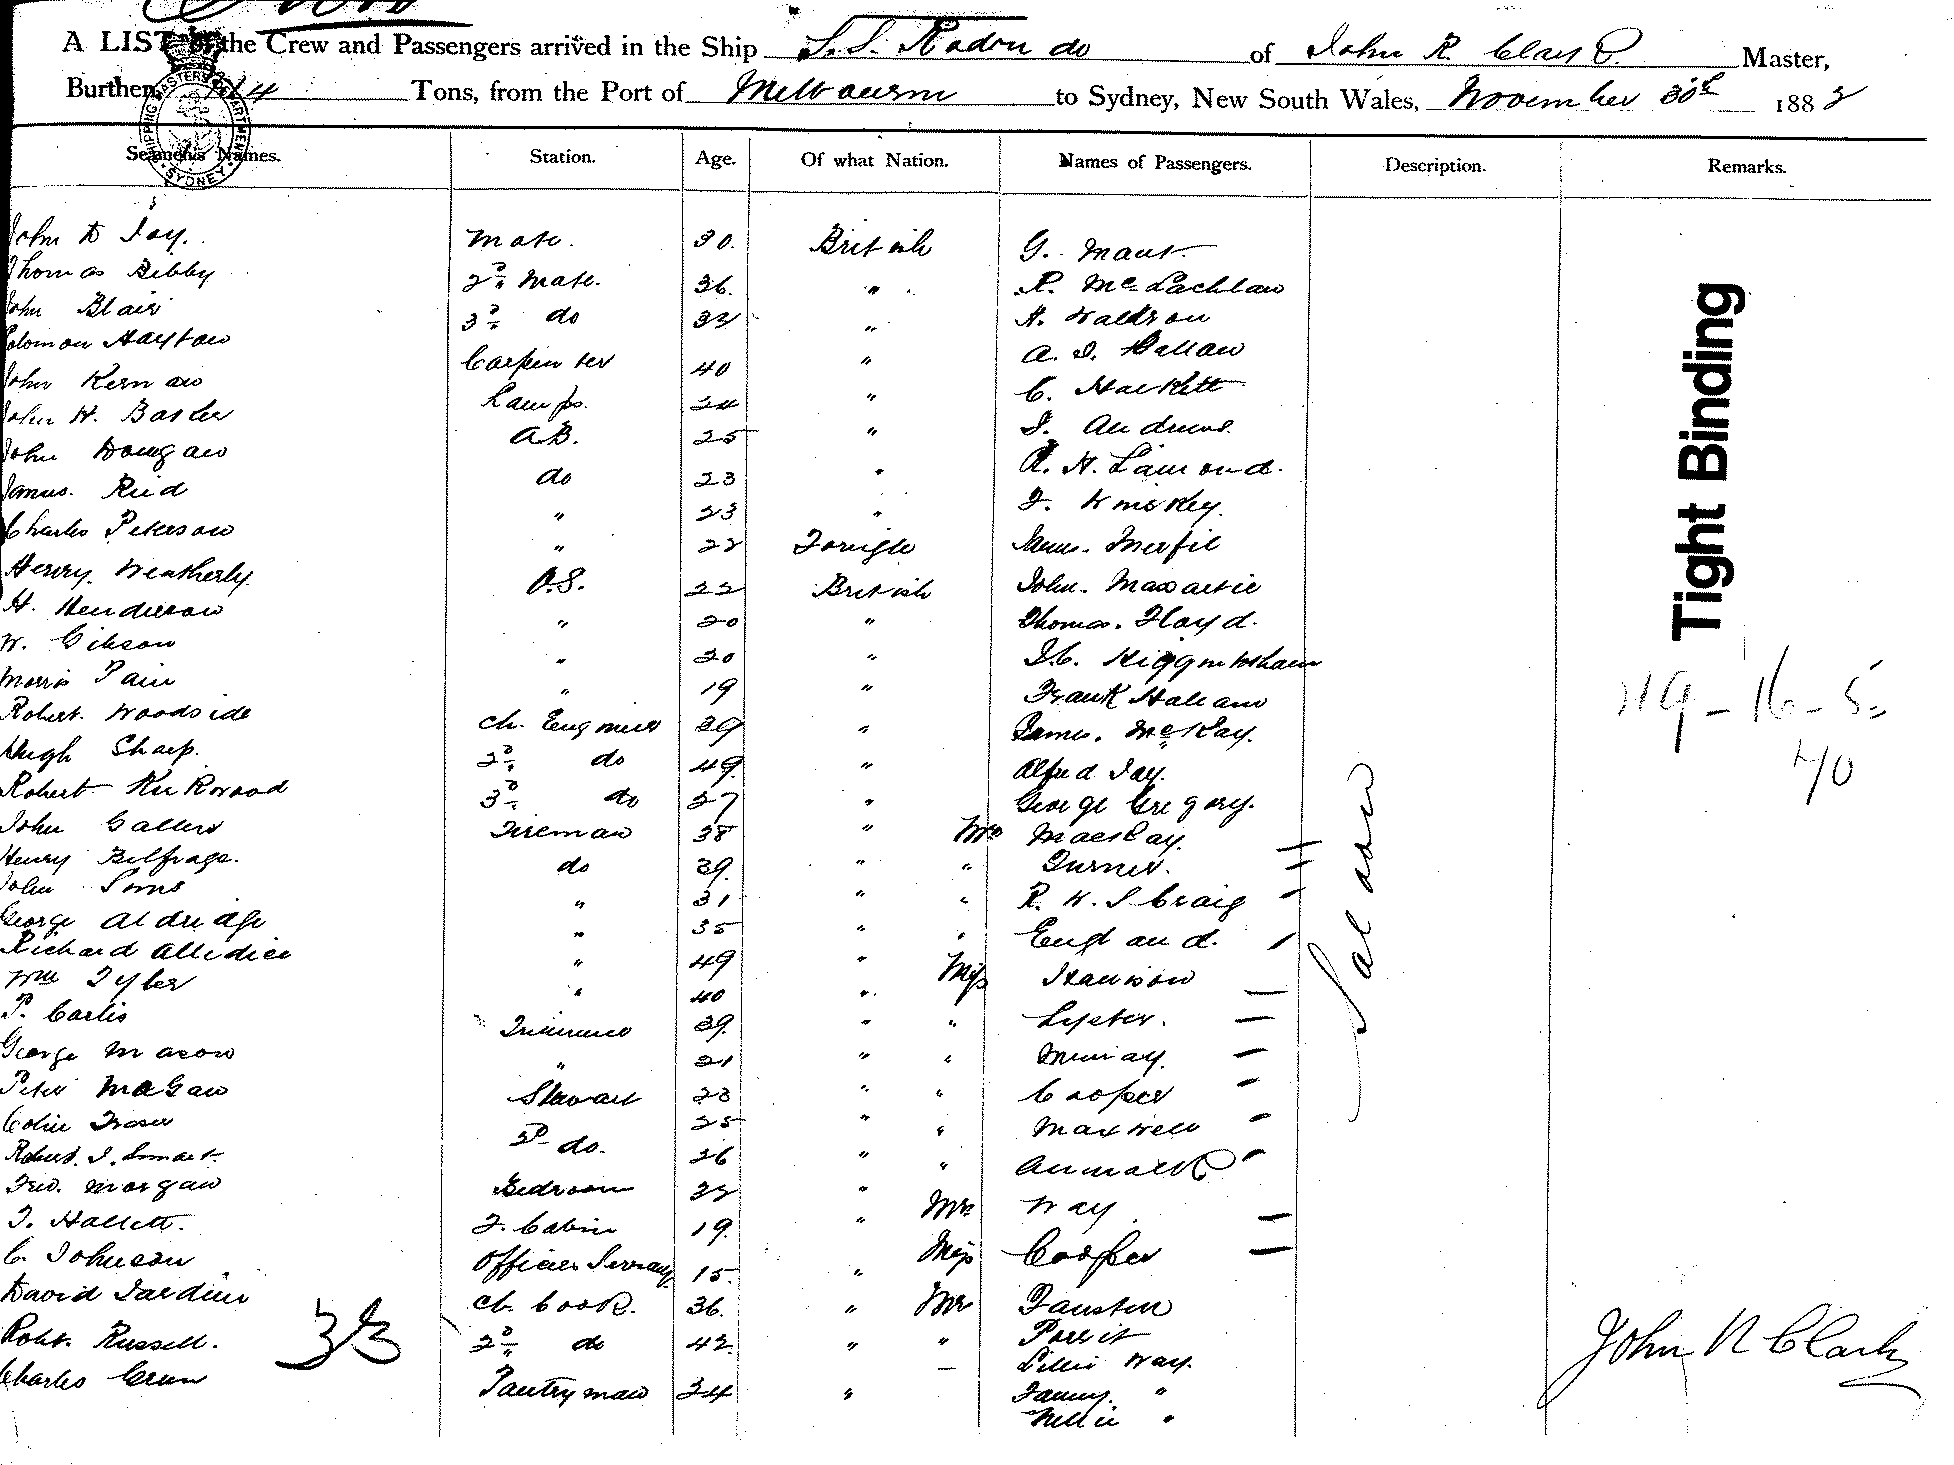 A LIST of the Crew and Passengers arrived in the Ship S.S. Rodondo of John R. Clark Master,
Burthen Tons, from the Port of Melbourne to Sydney, New South Wales, November 30th 1882
SHIPPING MASTERS DEPARTMENT SYDNEY
Seamen's Names. Station. Age. Of what Nation. Names of Passengers. Description. Remarks.
John D Jay. Mate. 30. British G. Mant
Thomas Bibby 2nd Mate. 36. " R. McLachlan
John Blair 3rd do 32 " H. Waldron
Solomon Hayton Carpenter 40 " A. J. Hallan
John Kernan Lamps. 24 " C. Hackett
John H. Basher A.B. 25 " J. Andrews.
John Dougan do 23 " R. H. Lamond.
James. Reid " 23 "
Charles Peterson " 22 Foreign James.
Henry. Weatherly O.S. 22 British John.
H. Henderson " 20 " Thomas. Floyd.
W. Gibson " 20 " J.C. Higginbotham
Morris Pain " 19 " Frank Hallam
Robert Woodside Ch. Engineer 39 " James. McKay.
Hugh Sharp. 2nd do 49. " Alfred Jay.
Robert Kirkwood 3rd do 27 " George Gregory.
John Fireman 38 " Mrs MacKay.
Henry Belfrage. do 39. " " Turner.
John Sims " 31 " " R. W. S Craig
George Aldridge " 35 " " England.
Richard Alledice " 49 " Miss Harrison
Wm Tyler " 40 " Lyster.
P. Carlis Trimmer 39. " " Murray.
George Mason " 21 " " Cooper
Peter McGaw Stewart 23 " " Maxwell
Colin Fraser 2nd do. 25 " "
Robert. J. Smart 26 " Mrs Way
Fred. Morgan Bedroom 22 " Miss Cooper
T. Hallett. F. Cabin 19. " Mr
C. Johnson Officers Servant 15. " "
David Jardine Ch. Cook. 36. " Lillie Way.
Robt. Russell. 2nd do 42. " Fanny. "
Charles Pantryman 24 " Nellie "
33
Saloon
Tight Binding
119 - 16 - 5.
40
John R Clark